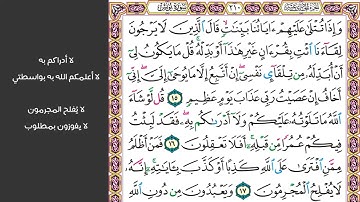 سورة يونس
٢١٠
لا أدراكم به
لا أعلمكم الله به بواسطتي
لا يُفلح المجرمون
لا يفوزون بمطلوب
وَإِذَا تُتْلَىٰ عَلَيْهِمْ ءَايَاتُنَا بَيِّنَٰتٍ قَالَ الَّذِينَ لَا يَرْجُونَ
لِقَاءَنَا ائْتِ بِقُرْءَانٍ غَيْرِ هَٰذَا أَوْ بَدِّلْهُ قُلْ مَا يَكُونُ لِي
أَنْ أُبَدِّلَهُ مِن تِلْقَايِٕ نَفْسِي إِنْ أَتَّبِعُ إِلَّا مَا يُوحَىٰ إِلَيَّ إِنِّي
أَخَافُ إِنْ عَصَيْتُ رَبِّي عَذَابَ يَوْمٍ عَظِيمٍ ١٥ قُل لَّوْ شَاءَ
اللَّهُ مَا تَلَوْتُهُ عَلَيْكُمْ وَلَا أَدْرَىٰكُم بِهِ فَقَدْ لَبِثْتُ
فِيكُمْ عُمُرًا مِّن قَبْلِهِ أَفَلَا تَعْقِلُونَ ١٦ فَمَنْ أَظْلَمُ
مِمَّنِ افْتَرَىٰ عَلَى اللَّهِ كَذِبًا أَوْ كَذَّبَ بِـَٔايَٰتِهِ إِنَّهُ
لَا يُفْلِحُ الْمُجْرِمُونَ ١٧ وَيَعْبُدُونَ مِن دُونِ اللَّهِ